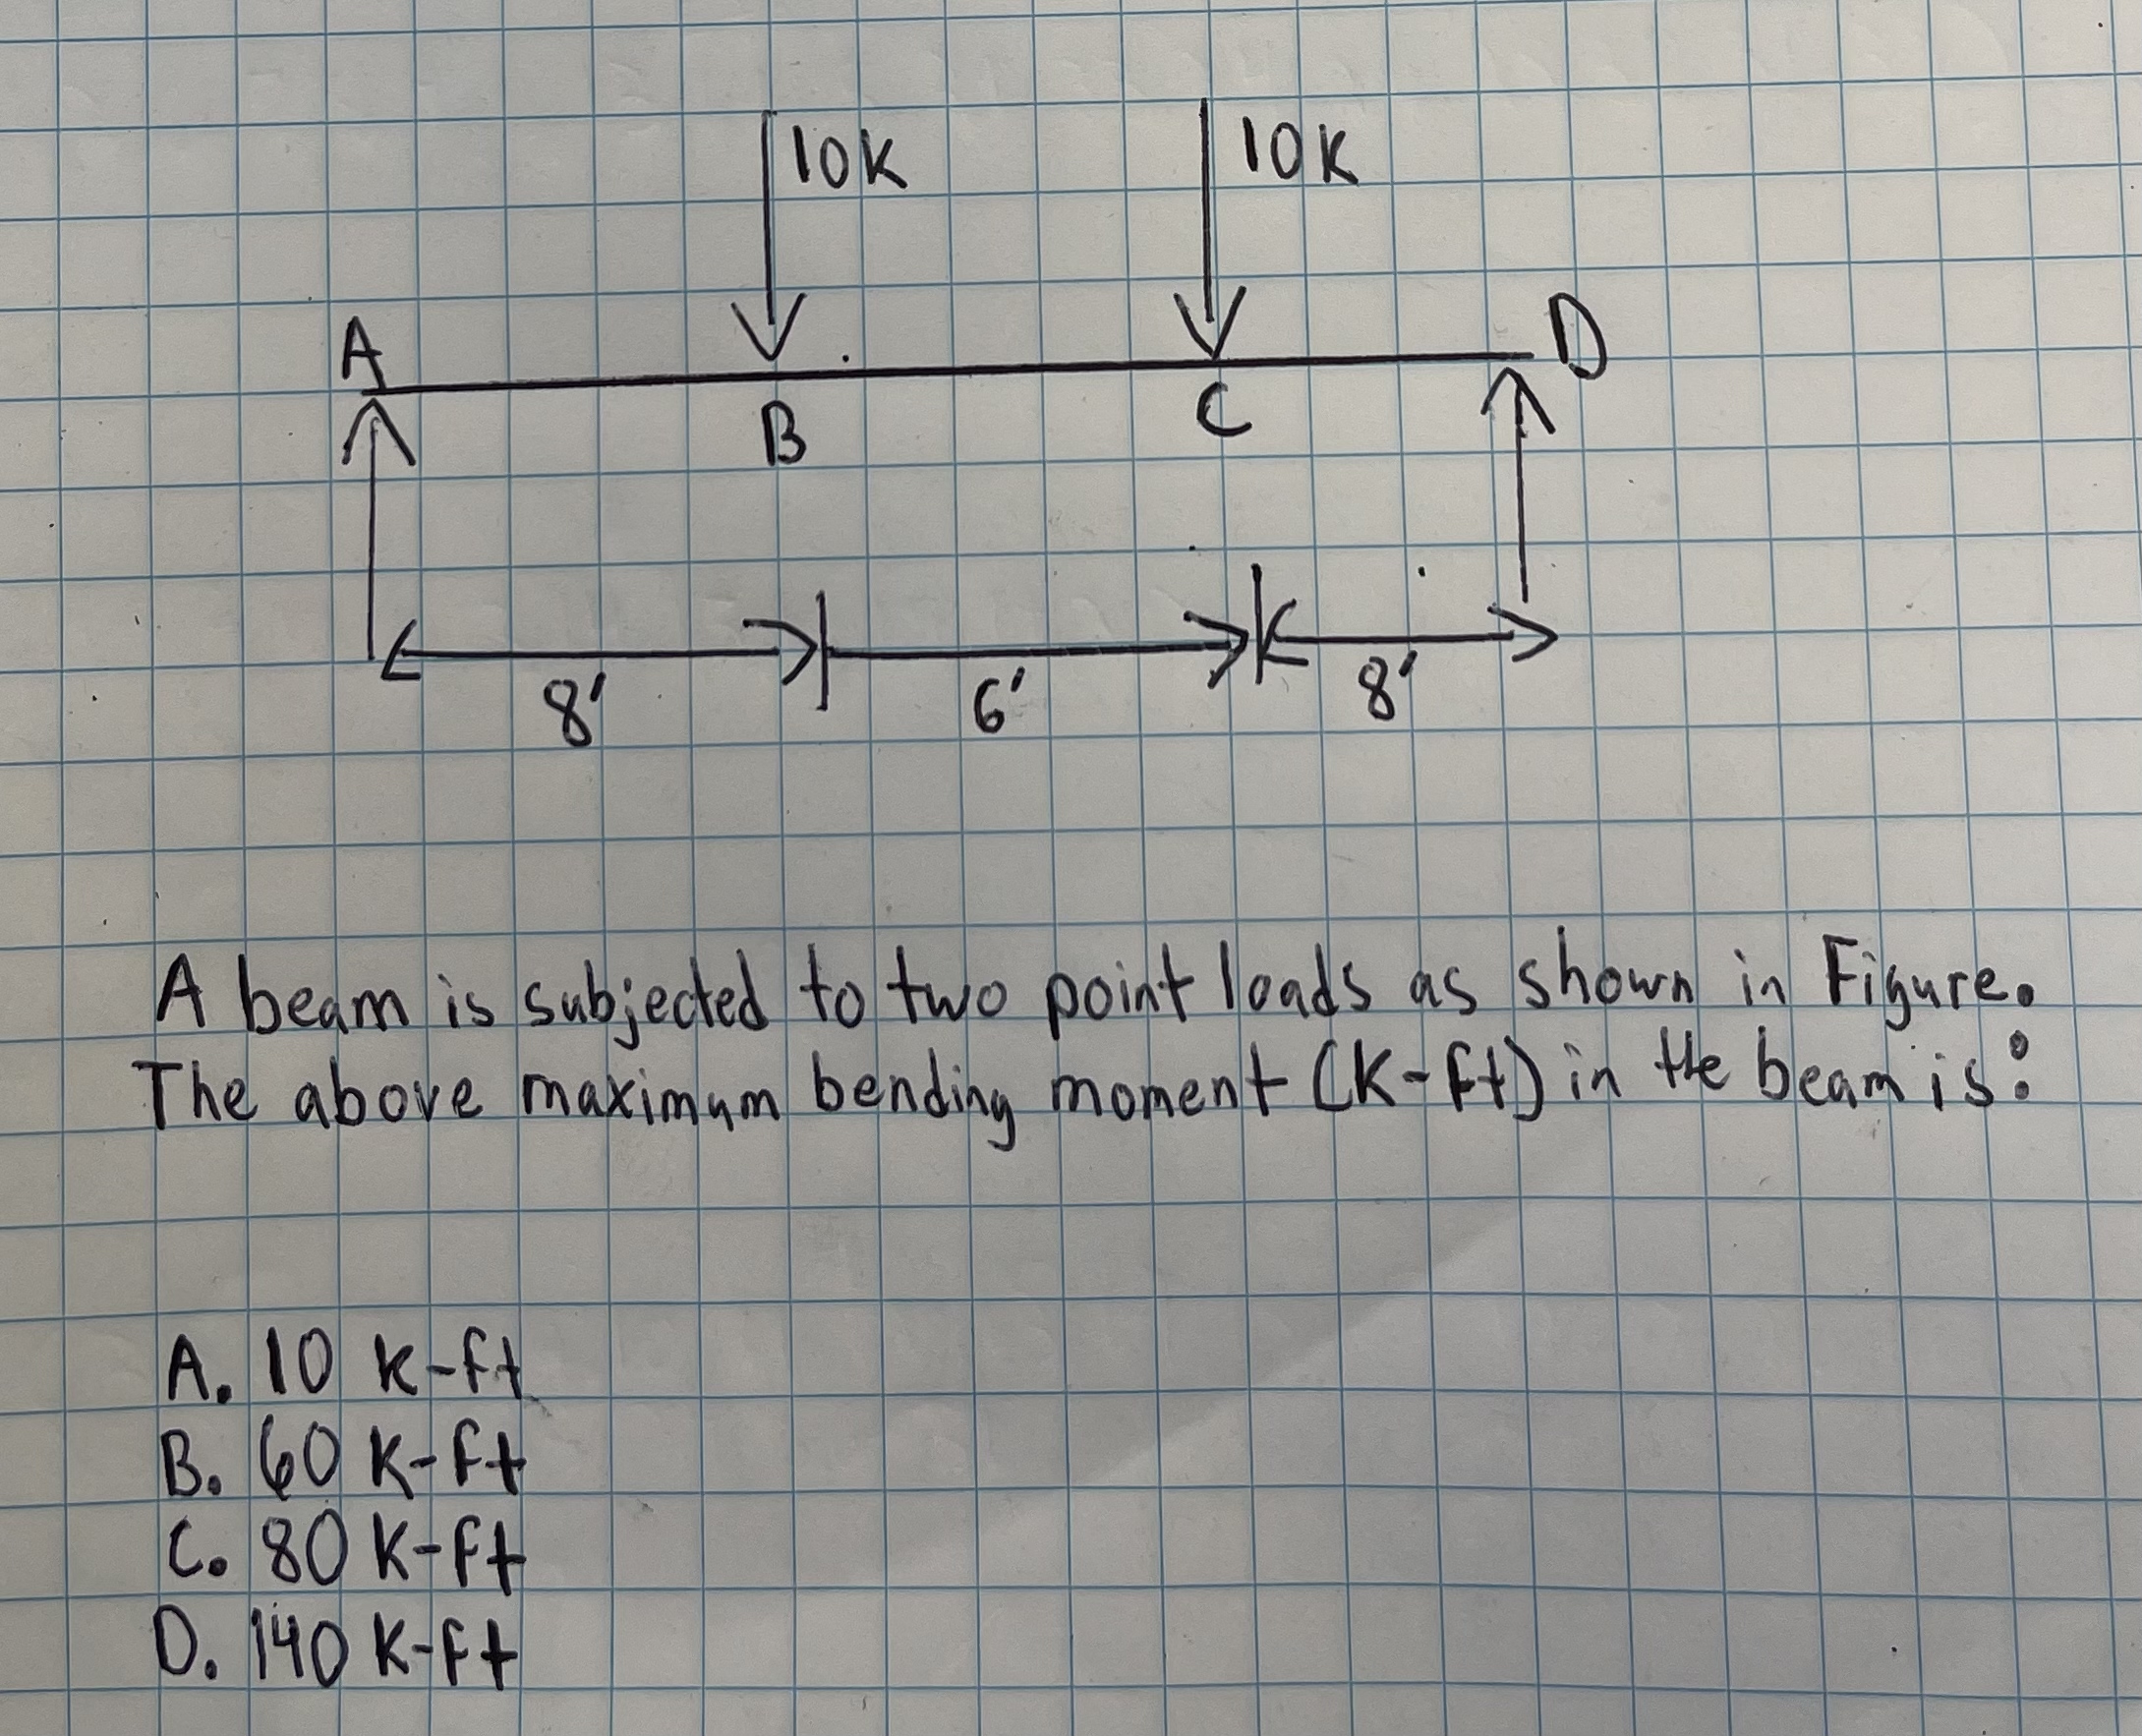 10K 10K
A D
B C
8' 6' 8'
A beam is subjected to two point loads as shown in Figure.
The above maximum bending moment (K-ft) in the beam is:
A. 10 K-ft
B. 60 K-ft
C. 80 K-ft
D. 140 K-ft